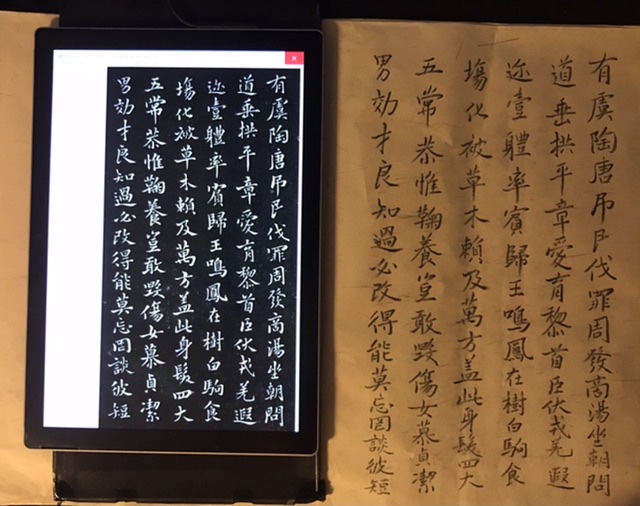 有虞陶唐吊民伐罪周發商湯坐朝問
道垂拱平章愛育黎首臣伏戎羌遐
迩壹體率賓歸王鳴鳳在樹白駒食
塲化被草木賴及萬方盖此身髮四大
五常恭惟鞠養豈敢毀傷女慕貞潔
男効才良知過必改得能莫忘罔談彼短
有虞陶唐吊民伐罪周發商湯坐朝問
道垂拱平章愛育黎首臣伏戎羌遐
迩壹體率賓歸王鳴鳳在樹白駒食
塲化被草木賴及萬方盖此身髮四大
五常恭惟鞠養豈敢毀傷女慕貞潔
男効才良知過必改得能莫忘罔談彼短